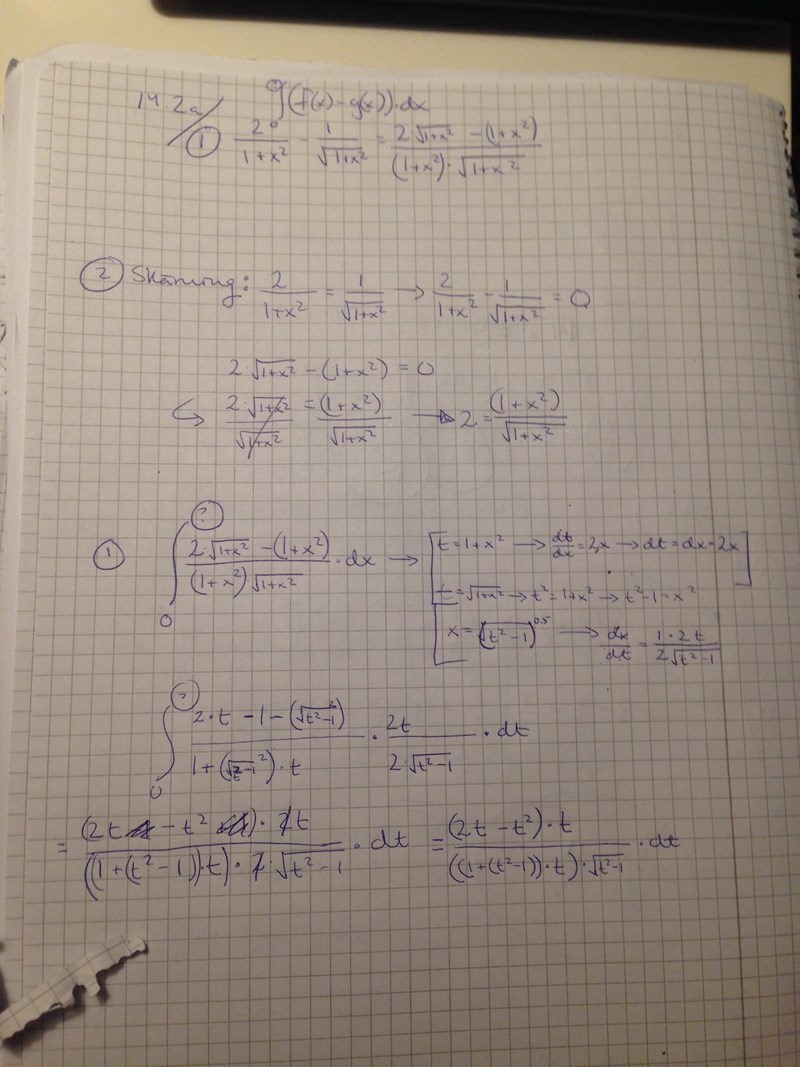 14.2a/ ∫(f(x) - g(x))·dx
① 2/(1+x²) - 1/√(1+x²) = (2√(1+x²) - (1+x²))/((1+x²)·√(1+x²))
② Skärning: 2/(1+x²) = 1/√(1+x²) → 2/(1+x²) - 1/√(1+x²) = 0
2·√(1+x²) - (1+x²) = 0
↪ 2·√(1+x²)/√(1+x²) = (1+x²)/√(1+x²) → 2 = (1+x²)/√(1+x²)
① ∫₀^? (2·√(1+x²) - (1+x²))/((1+x²)√(1+x²)) · dx → [t = 1+x² → dt/dx = 2x → dt = dx·2x]
t = √(1+x²) → t² = 1+x² → t²-1 = x²
x = (√(t²-1))^0.5 → dx/dt = 1·2t/(2√(t²-1))
∫₀^? (2·t - 1 - (√(t²-1))²)/(1+(√(t²-1)²)·t) · 2t/(2·√(t²-1)) · dt
= ((2t - t²)·2t)/(((1+(t²-1))·t)·2·√(t²-1)) · dt = ((2t - t²)·t)/(((1+(t²-1))·t)·√(t²-1)) · dt